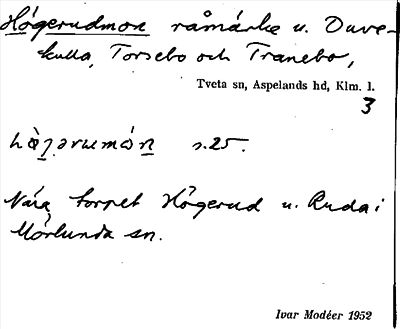 Högerudmon råmärke u. Duve-
kulla, Torsebo och Tranebo,
Tveta sn, Aspelands hd, Klm. l.
3
s.25.
Nära torpet Högerud u. Ruda i
Mörlunda sn.
Ivar Modéer 1952